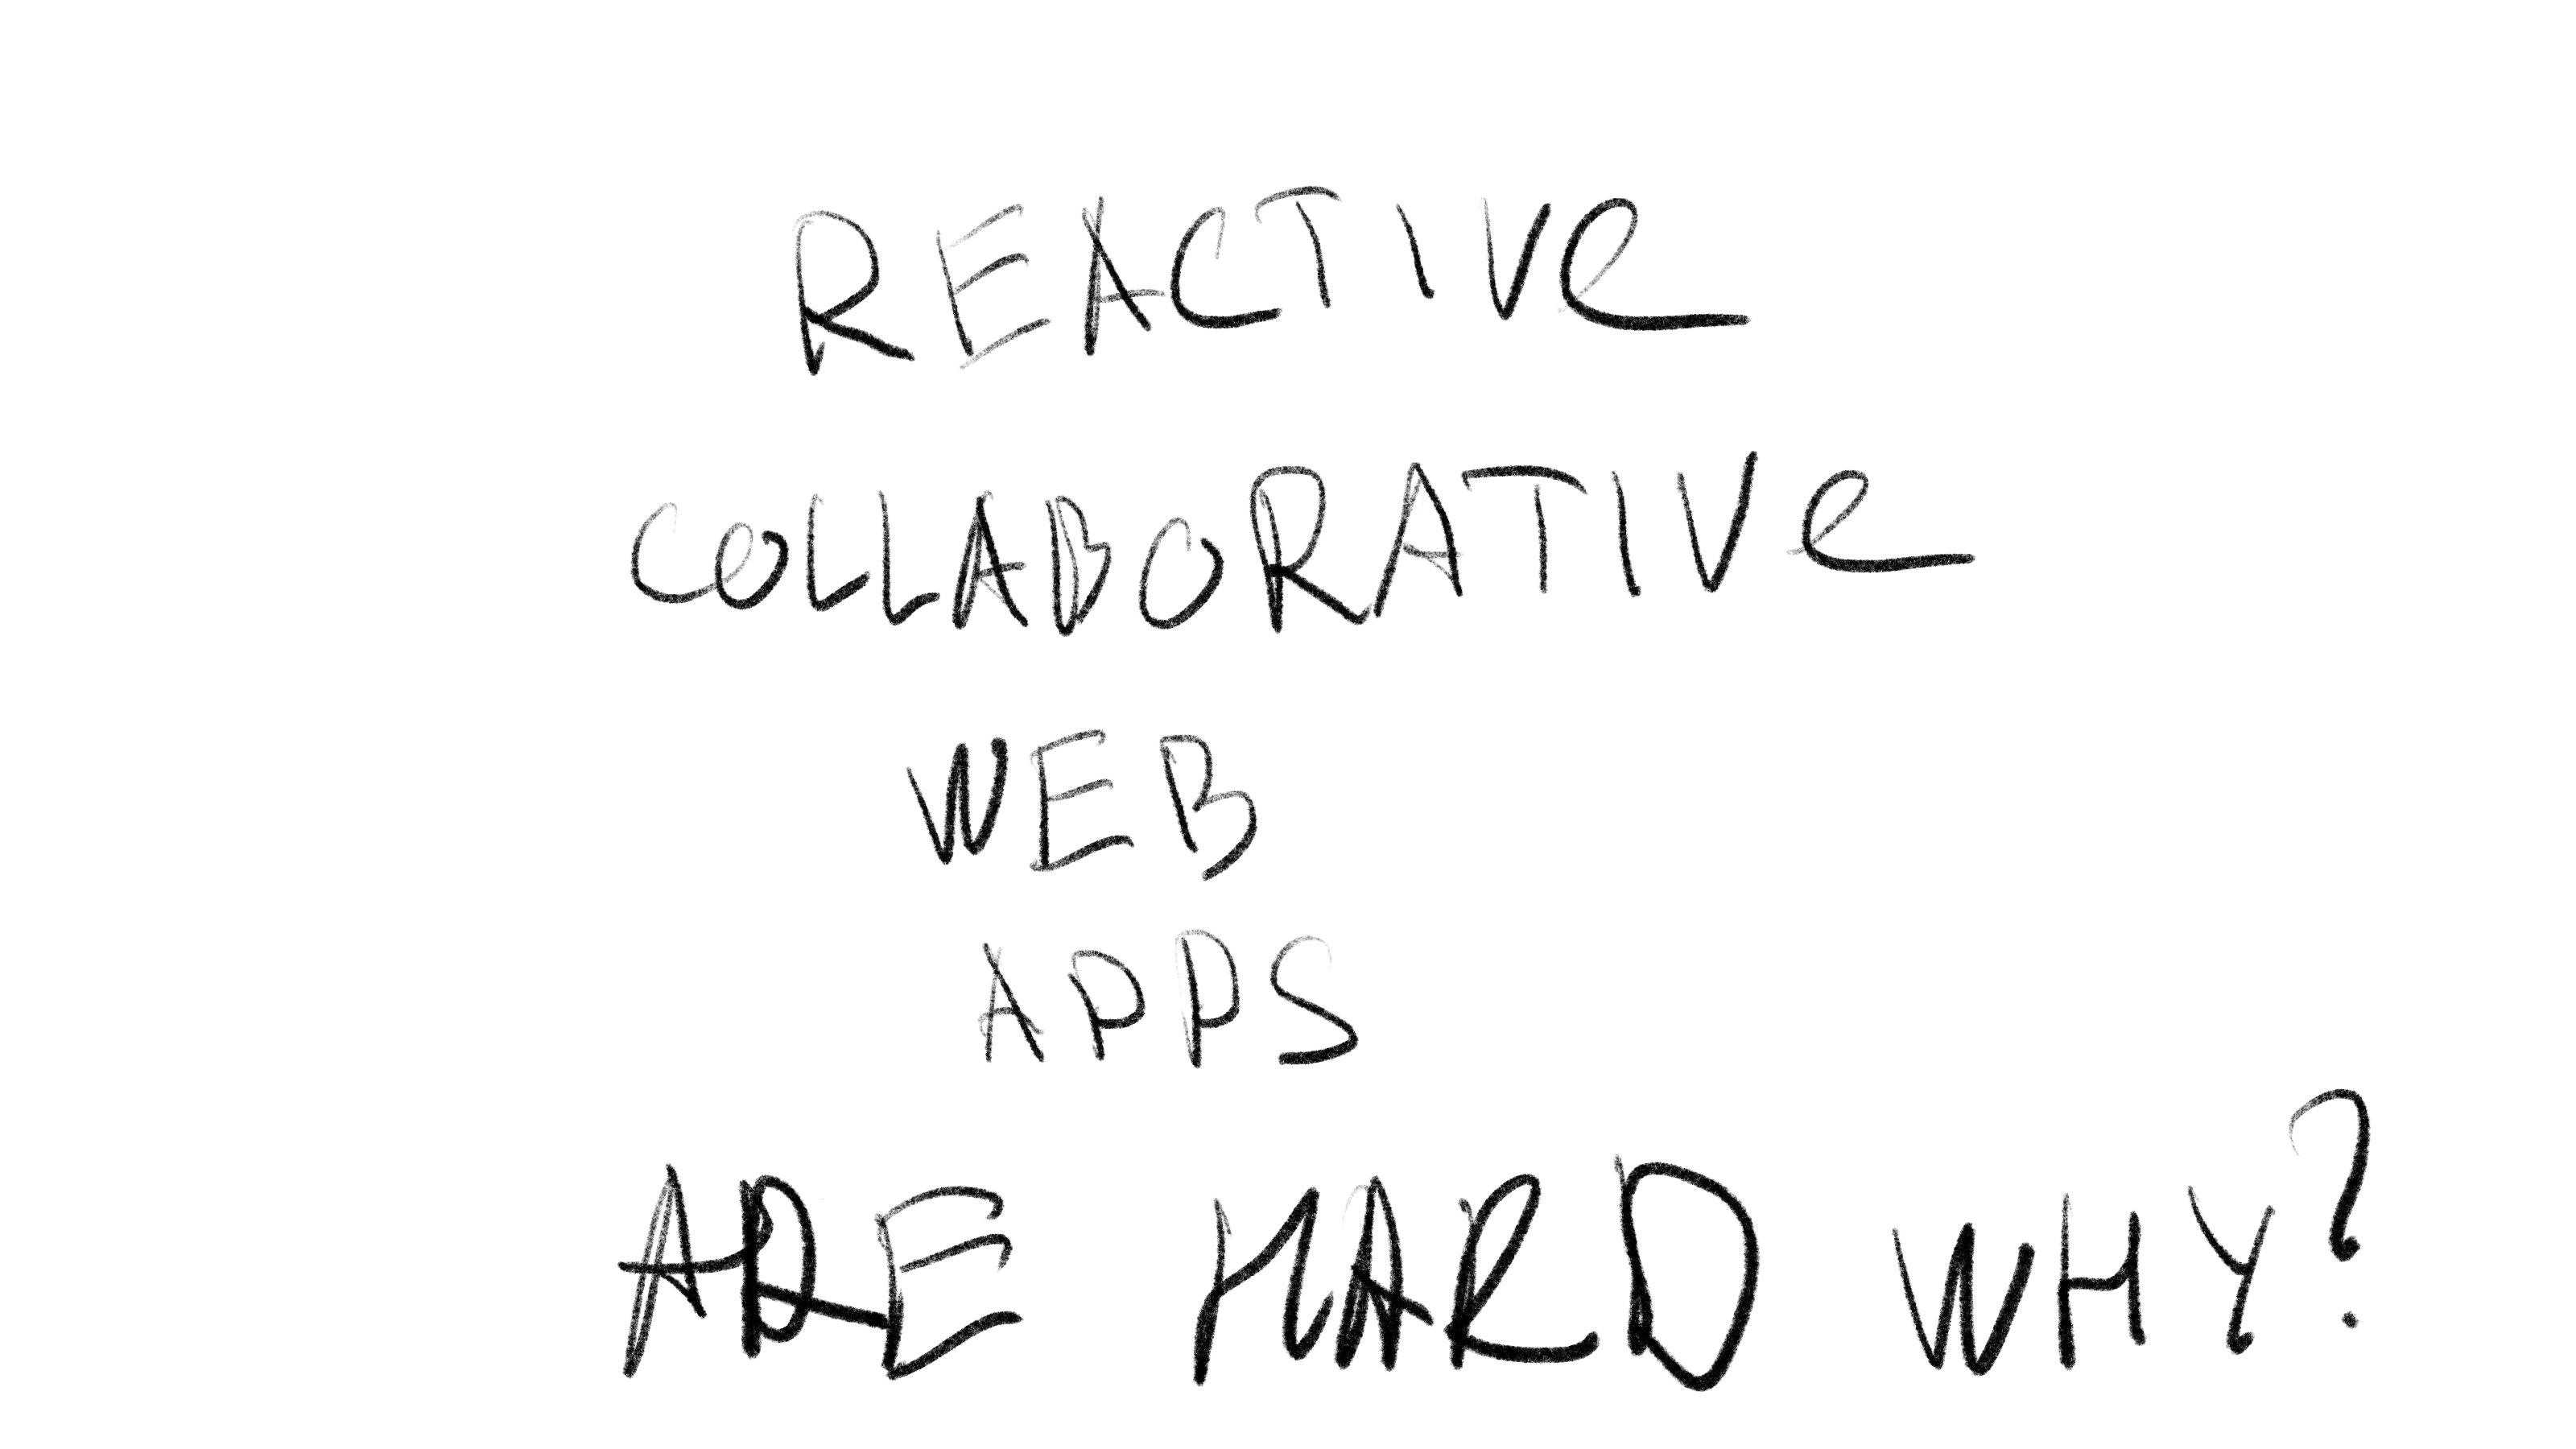 REACTIVe
COLLABORATIVe
WEB
APPS
ARE HARD WHY?